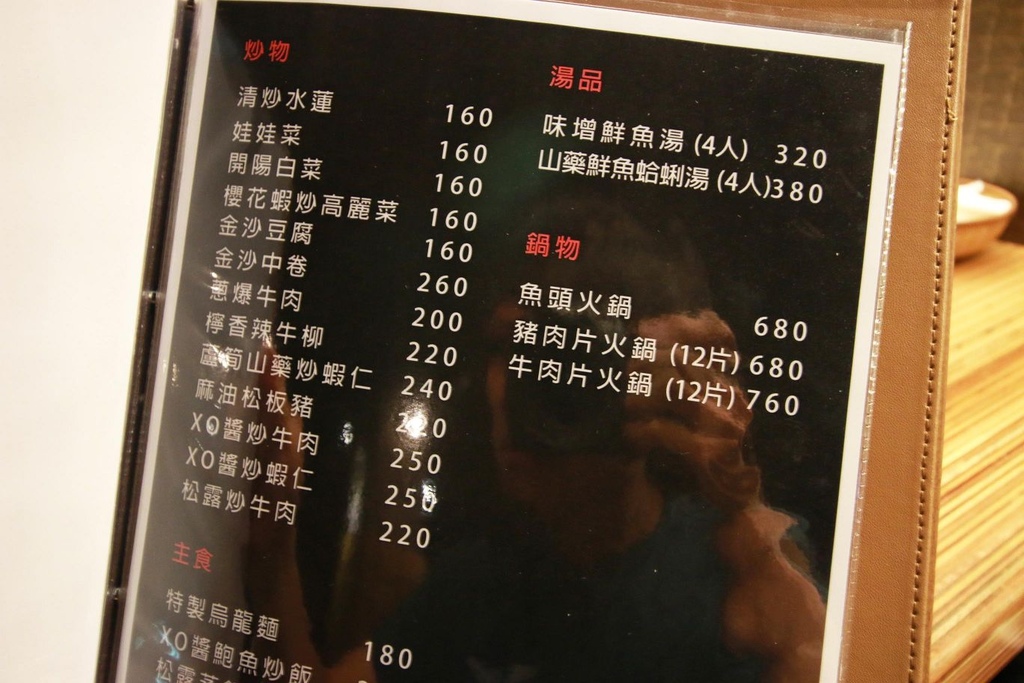 炒物
清炒水蓮 160
娃娃菜 160
開陽白菜 160
櫻花蝦炒高麗菜 160
金沙豆腐 160
金沙中卷 260
蔥爆牛肉 200
檸香辣牛柳 220
蘆筍山藥炒蝦仁 240
麻油松板豬
XO醬炒牛肉 250
XO醬炒蝦仁 250
松露炒牛肉 220
主食
特製烏龍麵 180
XO醬鮑魚炒飯
松露
湯品
味增鮮魚湯 (4人) 320
山藥鮮魚蛤蜊湯 (4人)380
鍋物
魚頭火鍋 680
豬肉片火鍋 (12片) 680
牛肉片火鍋 (12片) 760